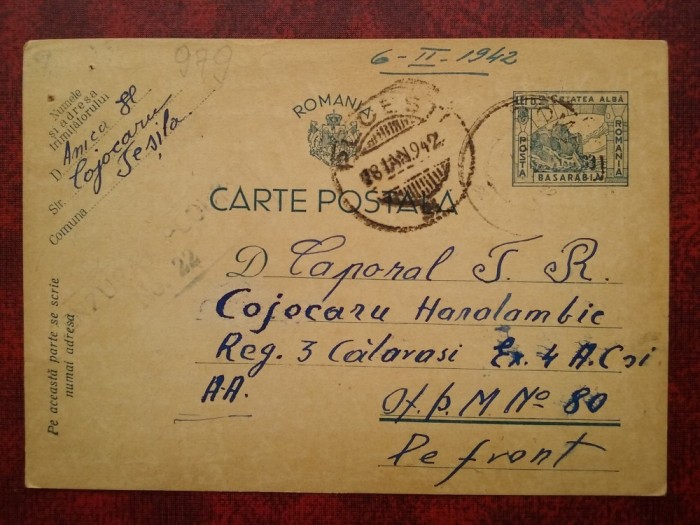 979
6-II-1942
Numele
și adresa
trimițătorului
D. Anica H
Cojocaru
Str. Tesila
Comuna
ROMANIA
28 IAN 942
CETATEA ALBĂ
POSTA
ROMANIA
BASARABIA
CARTE POSTALA
22
D Caporal T. R.
Cojocaru Haralambie
Reg. 3 Călarasi Ex. 4 A.C și
A-A.
Of. p. M. No 80
Pe front
Pe această parte se scrie
numai adresa